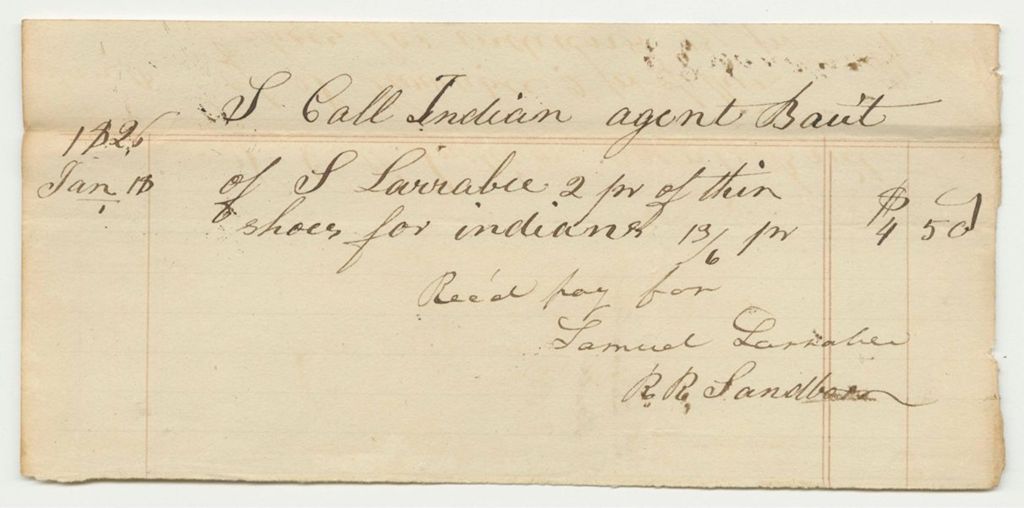 S Call Indian agent Baut
1826
Jan 18 of S Larrabee 2 pr of thin
shoes for indians 13/6 pr $4 50
Rec'd pay for
Samuel Larrabee
R. R. Sandborn